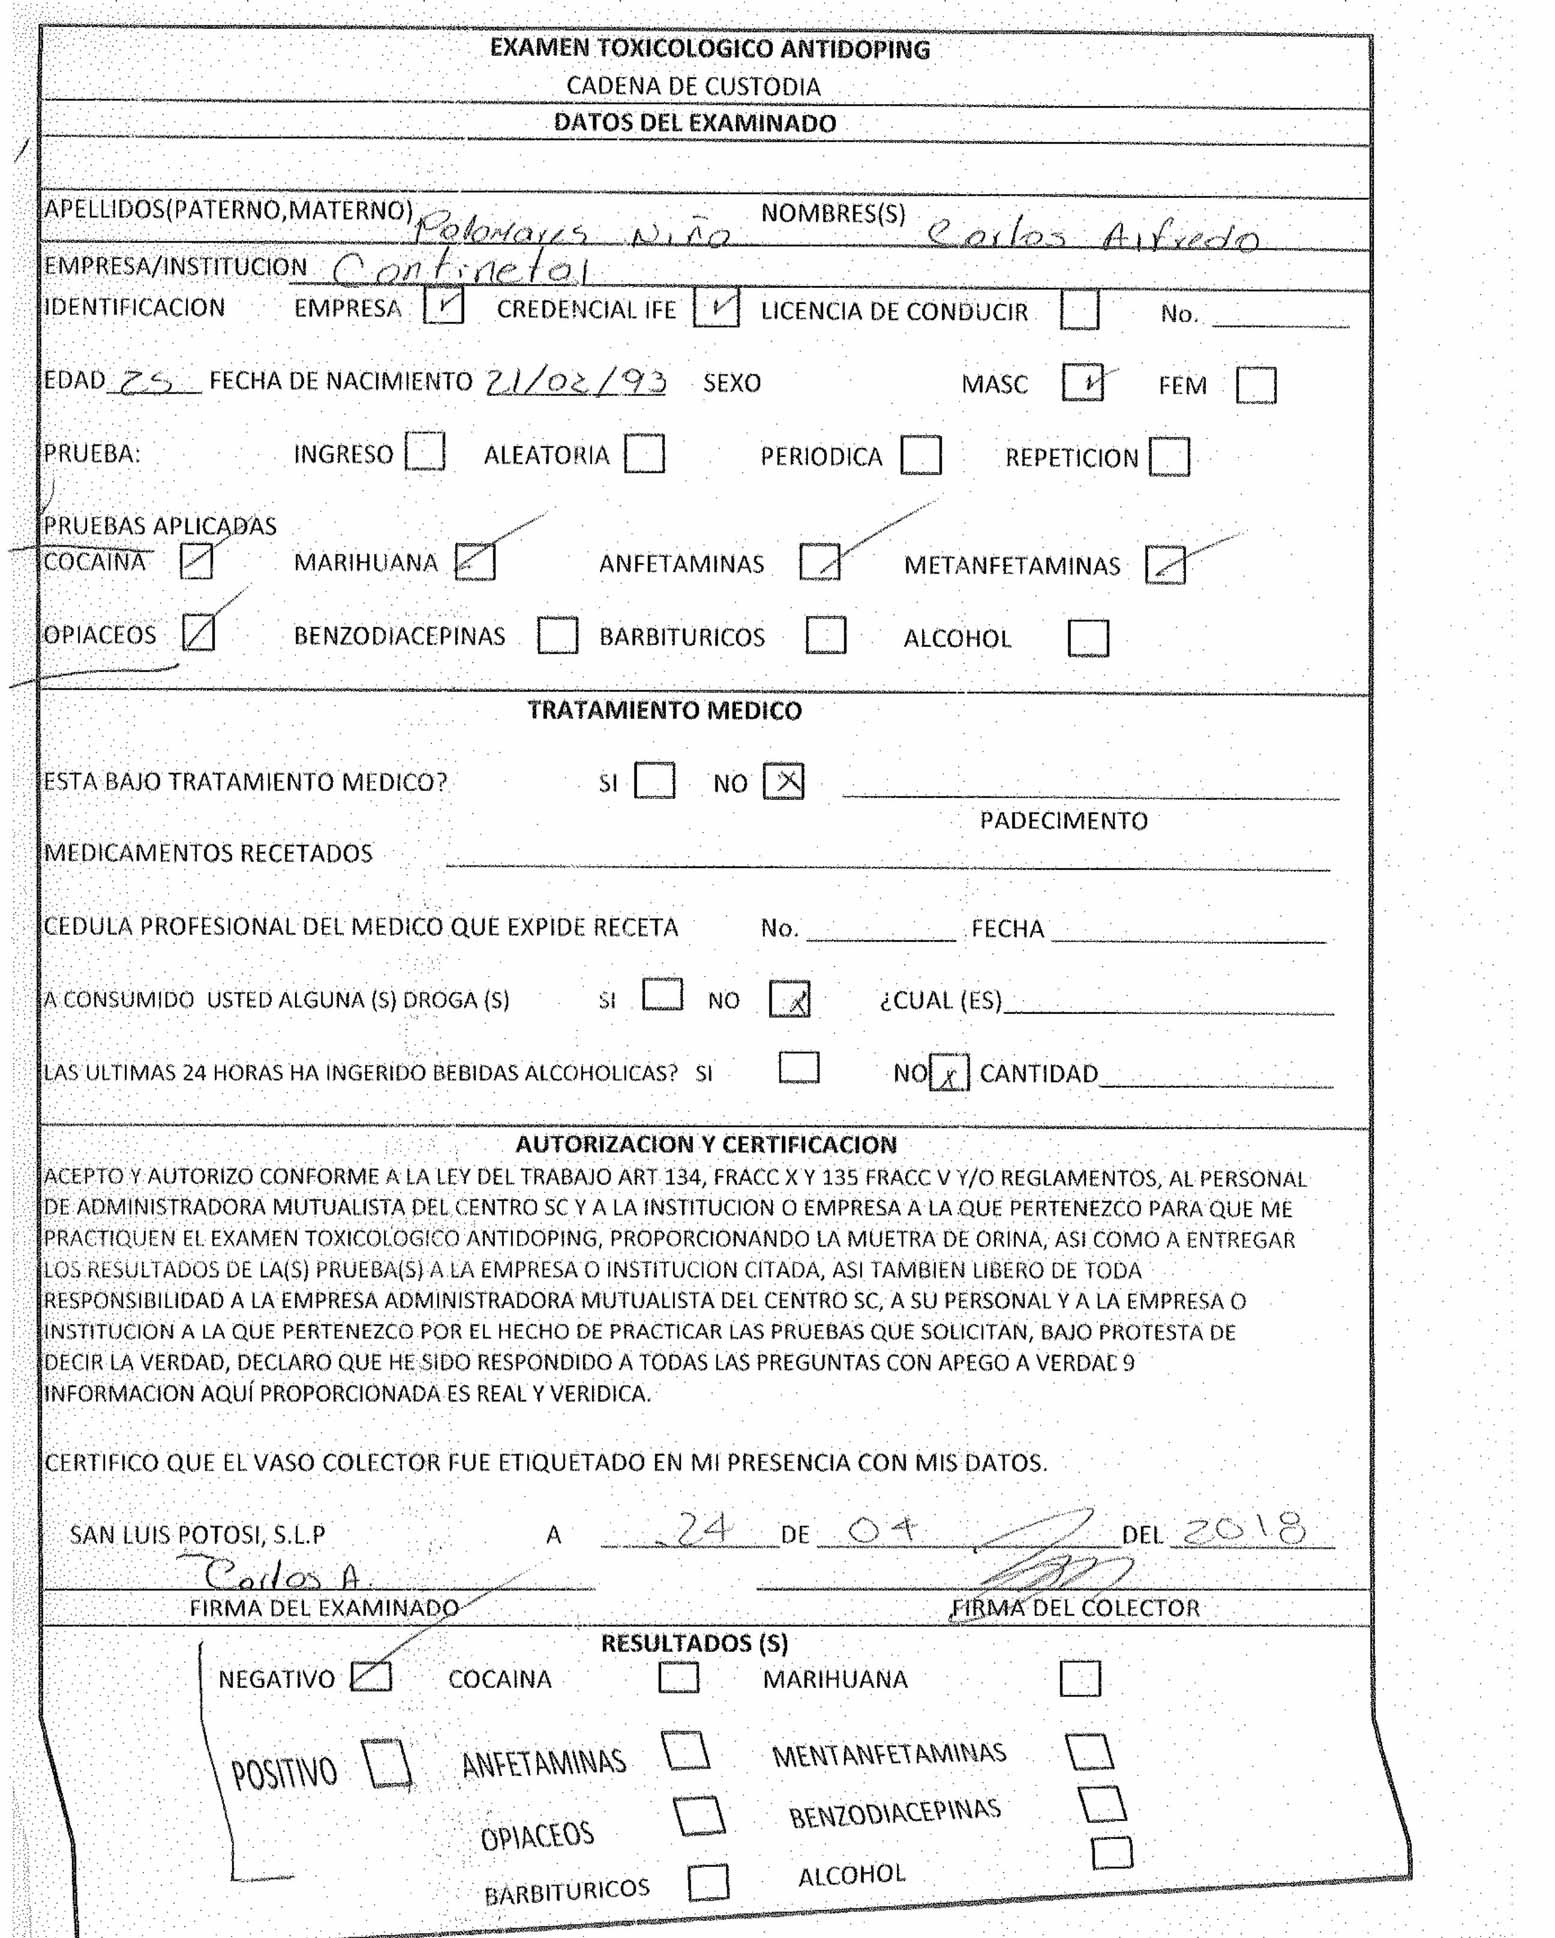 EXAMEN TOXICOLOGICO ANTIDOPING
CADENA DE CUSTODIA
DATOS DEL EXAMINADO
APELLIDOS(PATERNO,MATERNO) Palomares Niño NOMBRES(S) Carlos Alfredo
EMPRESA/INSTITUCION Continetal
IDENTIFICACION EMPRESA CREDENCIAL IFE LICENCIA DE CONDUCIR No.
EDAD 25 FECHA DE NACIMIENTO 21/02/93 SEXO MASC FEM
PRUEBA: INGRESO ALEATORIA PERIODICA REPETICION
PRUEBAS APLICADAS
COCAINA MARIHUANA ANFETAMINAS METANFETAMINAS
OPIACEOS BENZODIACEPINAS BARBITURICOS ALCOHOL
TRATAMIENTO MEDICO
ESTA BAJO TRATAMIENTO MEDICO? SI NO X
PADECIMENTO
MEDICAMENTOS RECETADOS
CEDULA PROFESIONAL DEL MEDICO QUE EXPIDE RECETA No. FECHA
A CONSUMIDO USTED ALGUNA (S) DROGA (S) SI NO X ¿CUAL (ES)
LAS ULTIMAS 24 HORAS HA INGERIDO BEBIDAS ALCOHOLICAS? SI NO X CANTIDAD
AUTORIZACION Y CERTIFICACION
ACEPTO Y AUTORIZO CONFORME A LA LEY DEL TRABAJO ART 134, FRACC X Y 135 FRACC V Y/O REGLAMENTOS, AL PERSONAL
DE ADMINISTRADORA MUTUALISTA DEL CENTRO SC Y A LA INSTITUCION O EMPRESA A LA QUE PERTENEZCO PARA QUE ME
PRACTIQUEN EL EXAMEN TOXICOLOGICO ANTIDOPING, PROPORCIONANDO LA MUETRA DE ORINA, ASI COMO A ENTREGAR
LOS RESULTADOS DE LA(S) PRUEBA(S) A LA EMPRESA O INSTITUCION CITADA, ASI TAMBIEN LIBERO DE TODA
RESPONSIBILIDAD A LA EMPRESA ADMINISTRADORA MUTUALISTA DEL CENTRO SC, A SU PERSONAL Y A LA EMPRESA O
INSTITUCION A LA QUE PERTENEZCO POR EL HECHO DE PRACTICAR LAS PRUEBAS QUE SOLICITAN, BAJO PROTESTA DE
DECIR LA VERDAD, DECLARO QUE HE SIDO RESPONDIDO A TODAS LAS PREGUNTAS CON APEGO A VERDAD 9
INFORMACION AQUÍ PROPORCIONADA ES REAL Y VERIDICA.
CERTIFICO QUE EL VASO COLECTOR FUE ETIQUETADO EN MI PRESENCIA CON MIS DATOS.
SAN LUIS POTOSI, S.L.P A 24 DE 04 DEL 2018
Carlos A.
FIRMA DEL EXAMINADO FIRMA DEL COLECTOR
RESULTADOS (S)
NEGATIVO COCAINA MARIHUANA
POSITIVO ANFETAMINAS MENTANFETAMINAS
OPIACEOS BENZODIACEPINAS
BARBITURICOS ALCOHOL